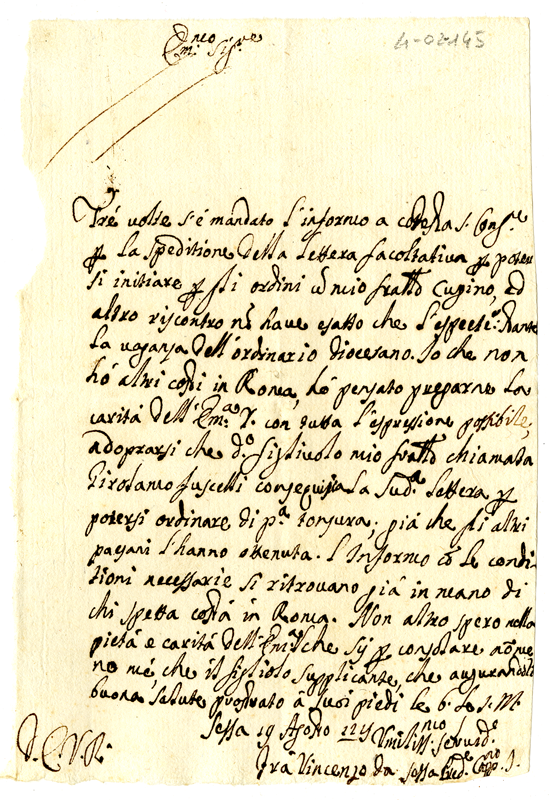 4-02-145
Em:mo Sig:re
Tré volte s'é mandato l'informo a codesta S. Cong.e
p la speditione della lettera facoltativa p poter
si initiare p gli ordini mio fratto Cugino, ed
altro riscontro nō have esatto che l'
la vacanza dell'ordinario diocesano. Io che non
hó altri costì in Roma, hó pensato pregarne la
carità dell'Em:a V. con tutta l'espressione possibile,
adoprarsi che d.o figliuolo mio fratto chiamata
Girolamo Fuscelli conseguisca la Sud.a lettera p
potersi ordinare di p.a tonsura, già che gli altri
pagani l'hanno ottenuta. l'Informo có le condi
tioni necessarie si ritrovano già in mano di
chi spetta costà in Roma. Non altro spero nella
pietà e carità dell'Em:a V. che p consolare
no mé, che il figliolo supplicante, che augurandole
buona salute prostrato à suoi piedi le b. le S. M.
Sessa 19 Agosto Umiliss:mo Ser
Frà Vincenzo da Sessa